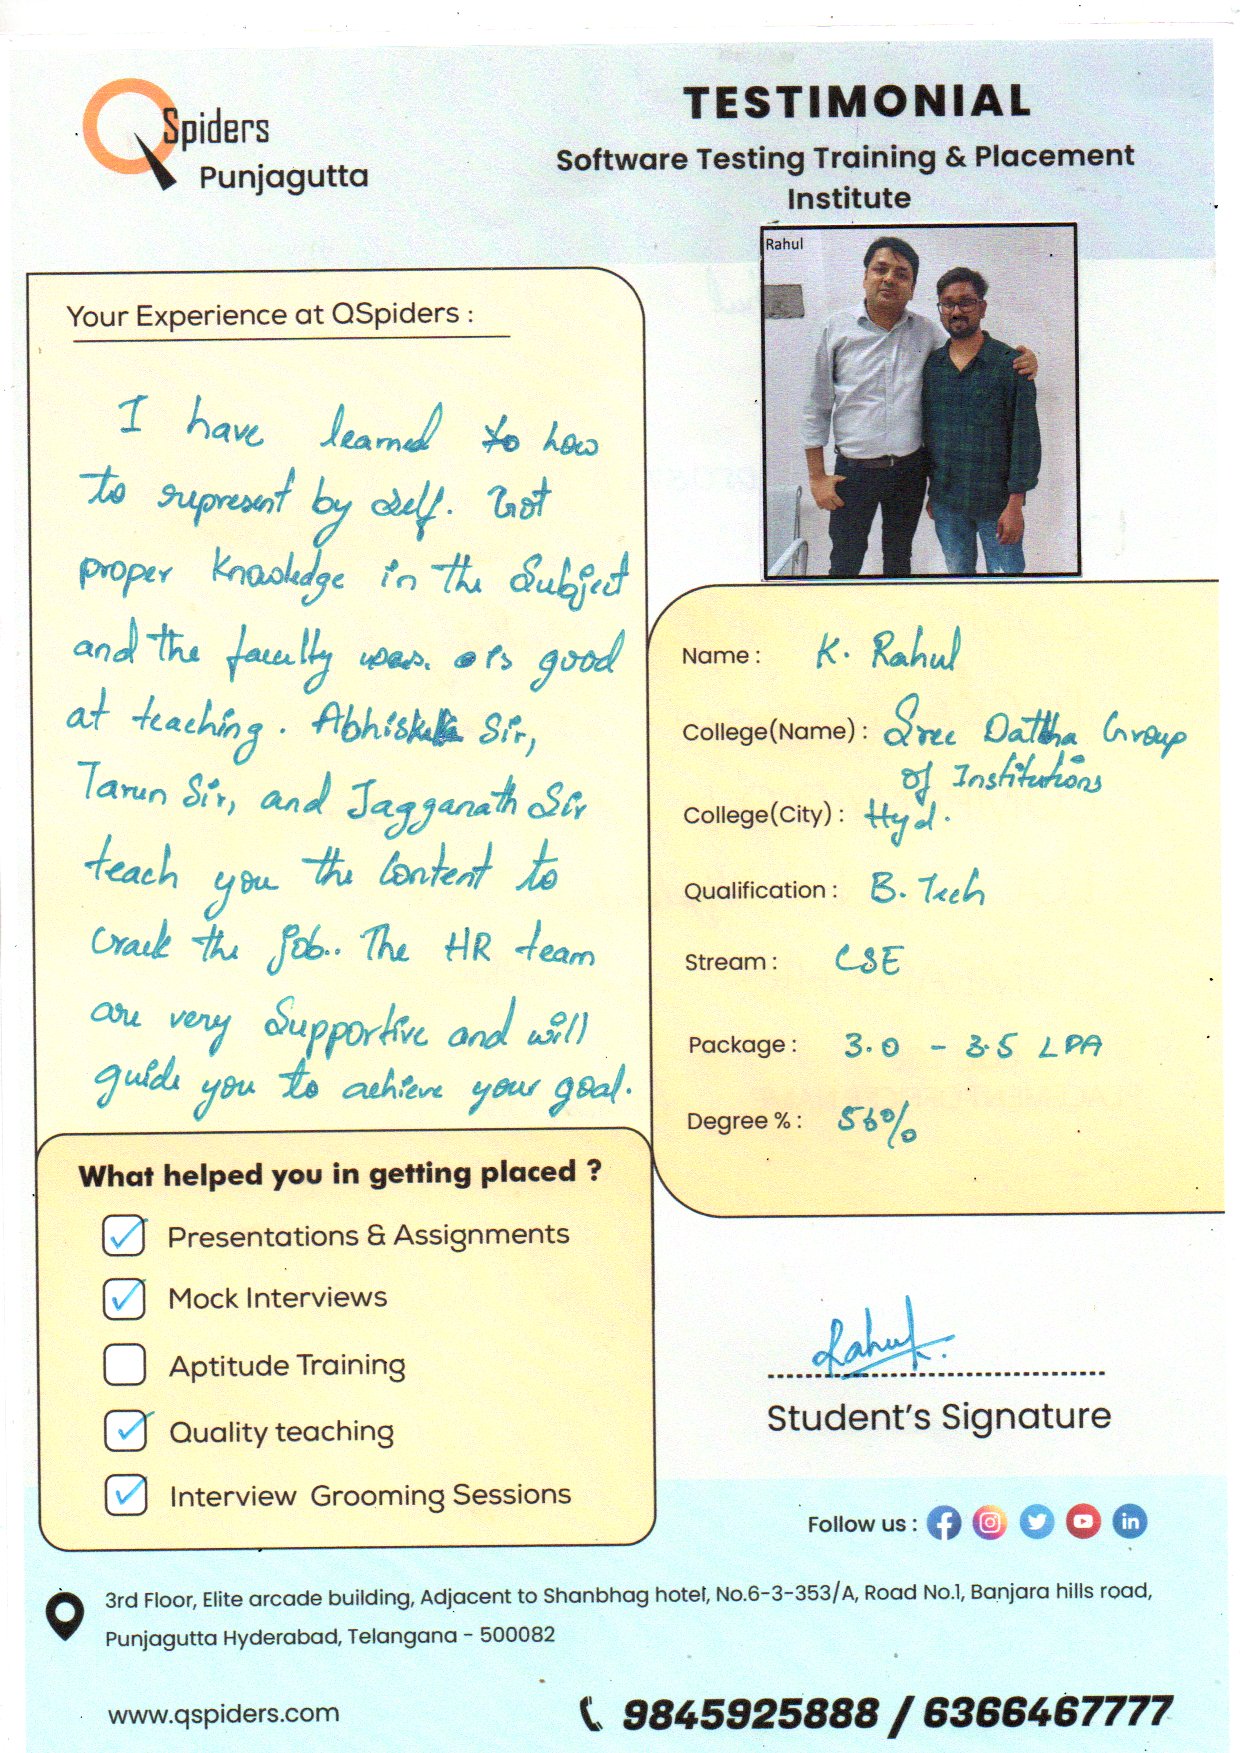 QSpiders
Punjagutta
TESTIMONIAL
Software Testing Training & Placement
Institute
Rahul
Your Experience at QSpiders :
I have learned to how
to represent by self. Got
proper knowledge in the Subject
and the faculty was. is good
at teaching. Sir,
Tarun Sir, and Jagganath Sir
teach you the Content to
Crack the job.. The HR team
are very Supportive and will
guide you to achieve your goal.
Name : K. Rahul
College(Name) : Sree Dattha Group
of Institutions
College(City) : Hyd.
Qualification : B. Tech
Stream : CSE
Package : 3.0 - 3.5 LPA
Degree % : 56%
What helped you in getting placed ?
Presentations & Assignments
Mock Interviews
Aptitude Training
Quality teaching
Interview Grooming Sessions
Rahul.
Student's Signature
Follow us :
3rd Floor, Elite arcade building, Adjacent to Shanbhag hotel, No.6-3-353/A, Road No.1, Banjara hills road,
Punjagutta Hyderabad, Telangana - 500082
www.qspiders.com
9845925888 / 6366467777